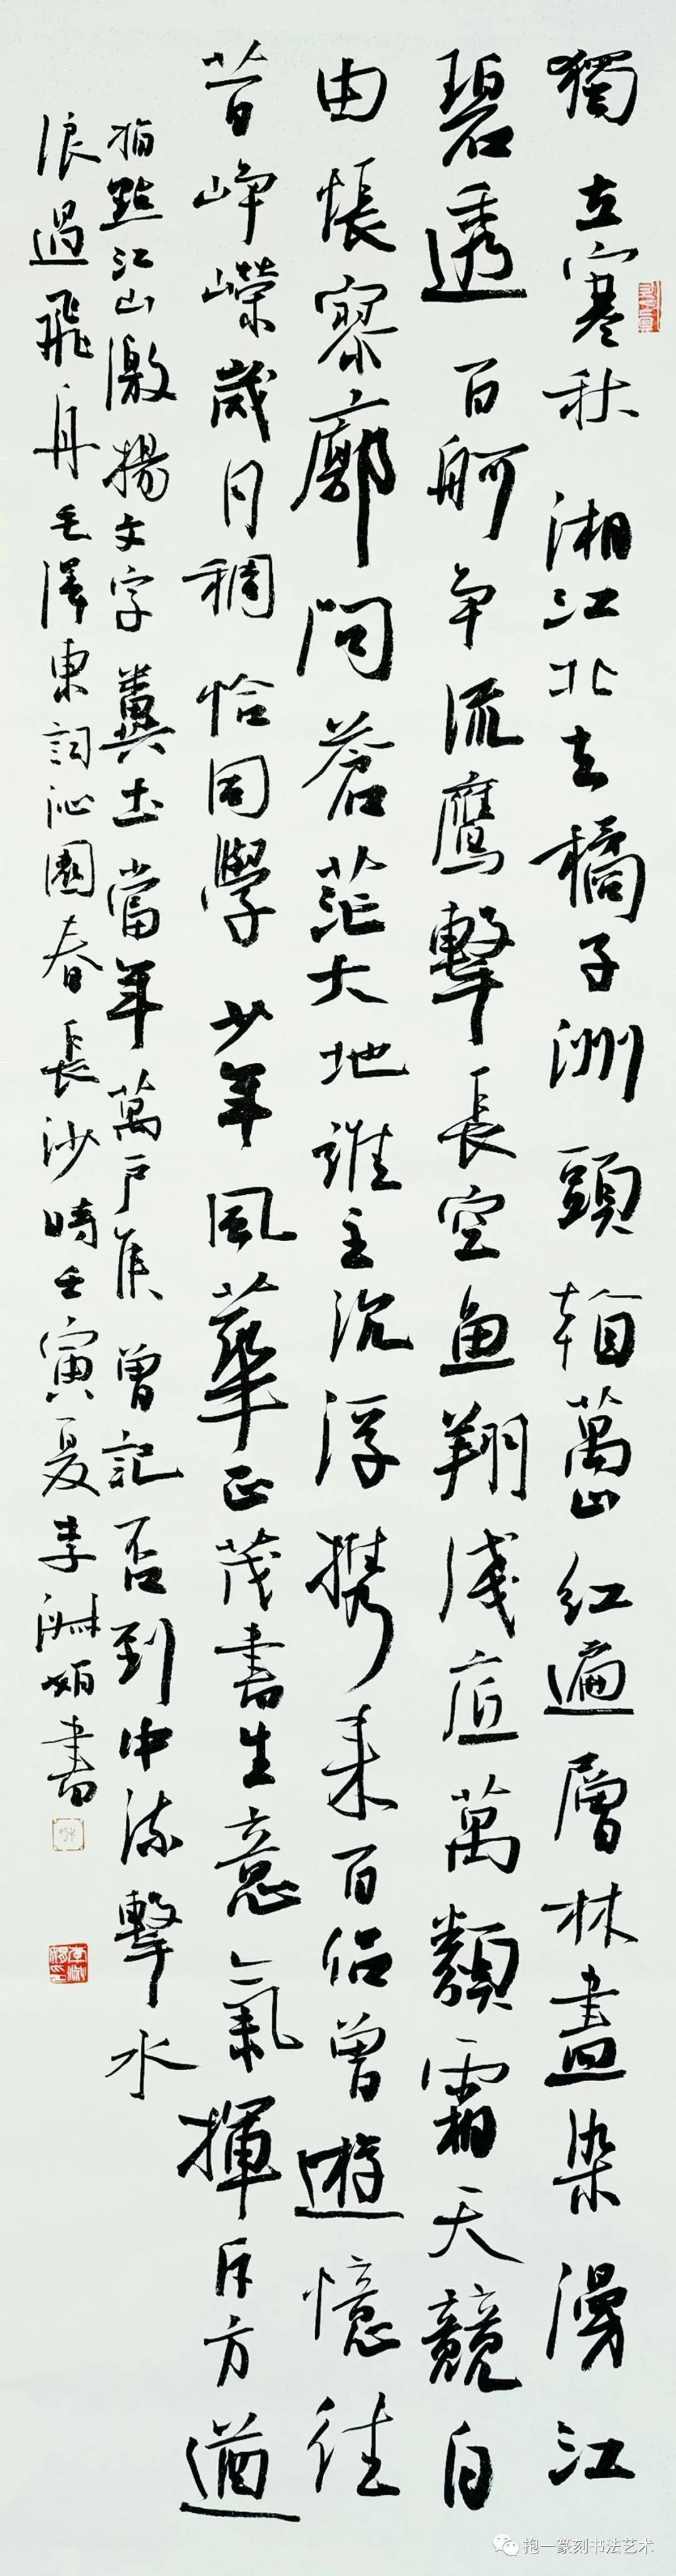 獨立寒秋湘江北去橘子洲頭看萬山紅遍層林盡染漫江
碧透百舸争流鹰擊長空鱼翔淺底萬類霜天競自
由悵寥廓問蒼茫大地誰主沉浮携来百侣曾遊憶往
昔崢嶸歲月稠恰同學少年風華正茂書生意氣揮斥方遒
指點江山激揚文字糞土當年萬户侯曾記否到中流擊水
浪遏飛舟毛澤東詞沁園春長沙時壬寅夏李書
抱一篆刻书法艺术